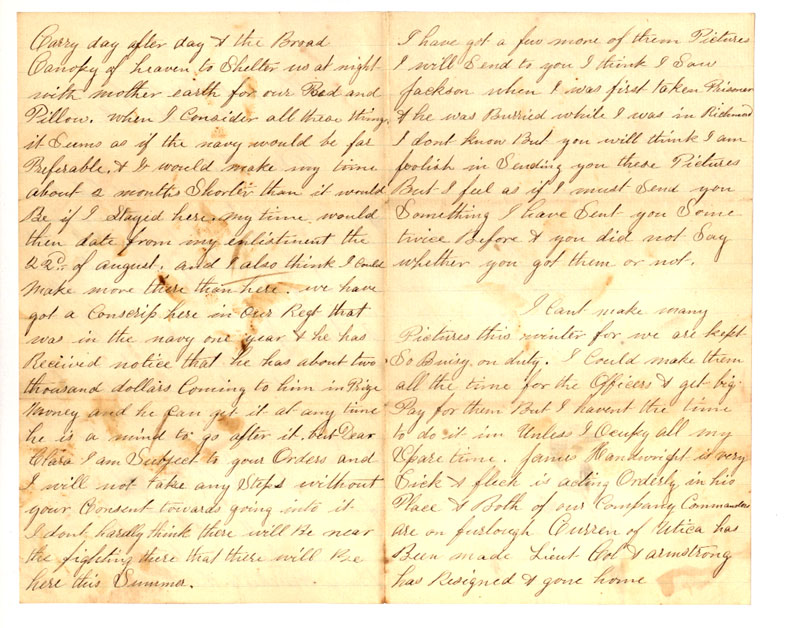 Carry day after day & the Broad
Canopy of heaven to Shelter us at night
with mother earth for our Bed and
Pillow. when I Consider all these things,
it Seems as if the navy would be far
Preferable. & It would make my time
about 2 months Shorter than it would
Be if I Stayed here. my time would
then date from my enlistment the
22nd of august. and I also think I Could
make more there than here. we have
got a Conscrip here in our Regt that
was in the navy one year & he has
Received notice that he has about two
thousand dollars Coming to him in Prize
Money and he can get it at any time
he is a mind to go after it. but Dear
Clara I am Subject to your Orders and
I will not take any Steps without
your Consent towards going into it
I dont hardly think there will Be near
the fighting there that there will Be
here this Summer.
I have got a few more of them Pictures
I will Send to you I think I Saw
Jackson when I was first taken Prisoner
& he was Burried while I was in Richmond
I dont know But you will think I am
foolish in Sending you these Pictures
But I feel as if I must Send you
Something I have Sent you Some
twice Before & you did not Say
whether you got them or not.
I cant make many
Pictures this winter for we are kept
So Busy on duty. I Could make them
all the time for the Officers & get big
Pay for them But I havent the time
to do it in Unless I Ocupy all my
Spare time. James is very
Sick & is acting Orderly in his
Place & Both of our Company Commanders
are on furlough Curren of Utica has
Been made Lieut Col & armstrong
has Resigned & gone home